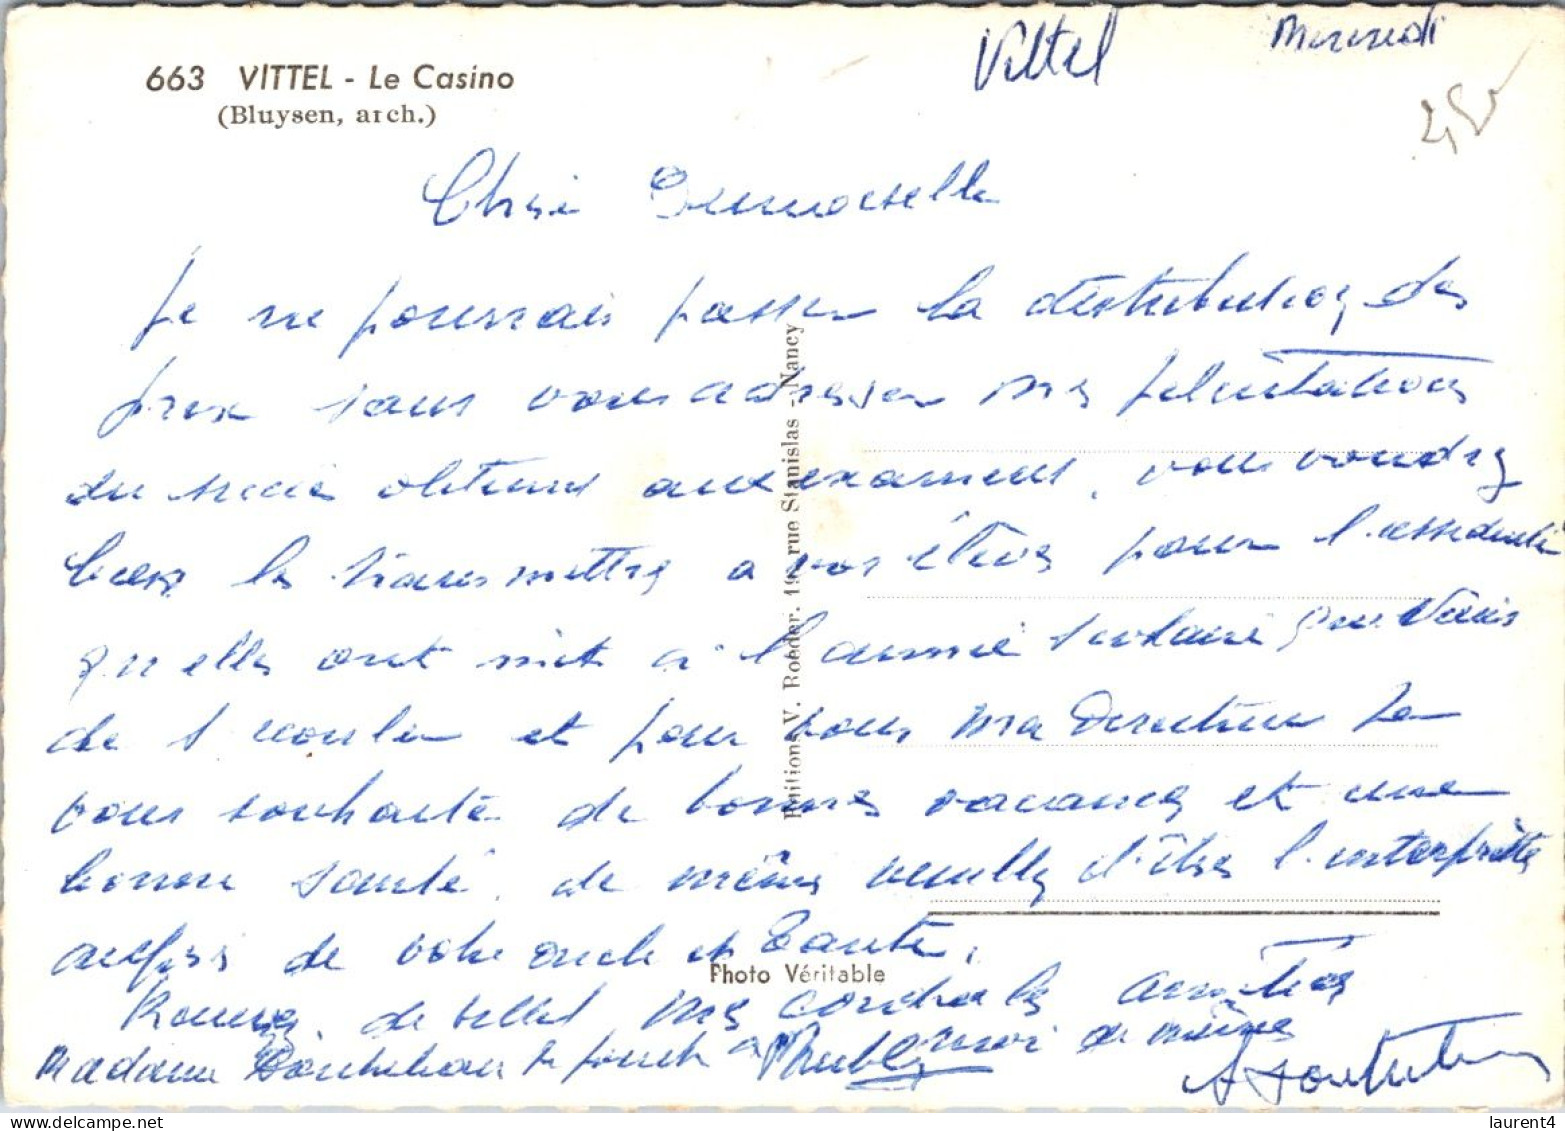 663 VITTEL - Le Casino
(Bluysen, arch.)
Vittel Mercredi
Chère Demoiselle
Je ne pourrais passer la distribution des
prix sans vous adresser mes félicitations
du succès obtenus aux examens, vous voudrez
bien les transmettre a vos élèves pour l'assiduité
qu'elles ont mit à l'année scolaire que viens
de s'écouler et pour vous ma Directrice je
vous souhaite de bonnes vacances et une
bonne santé. de même veuillez d'être l'interprète
auprès de votre oncle et Tante.
Recevez de selles mes cordiales amitiés
Madame se joint a moi de même
Editions V. Roeder. 19, rue Stanislas - Nancy
Photo Véritable
laurent4